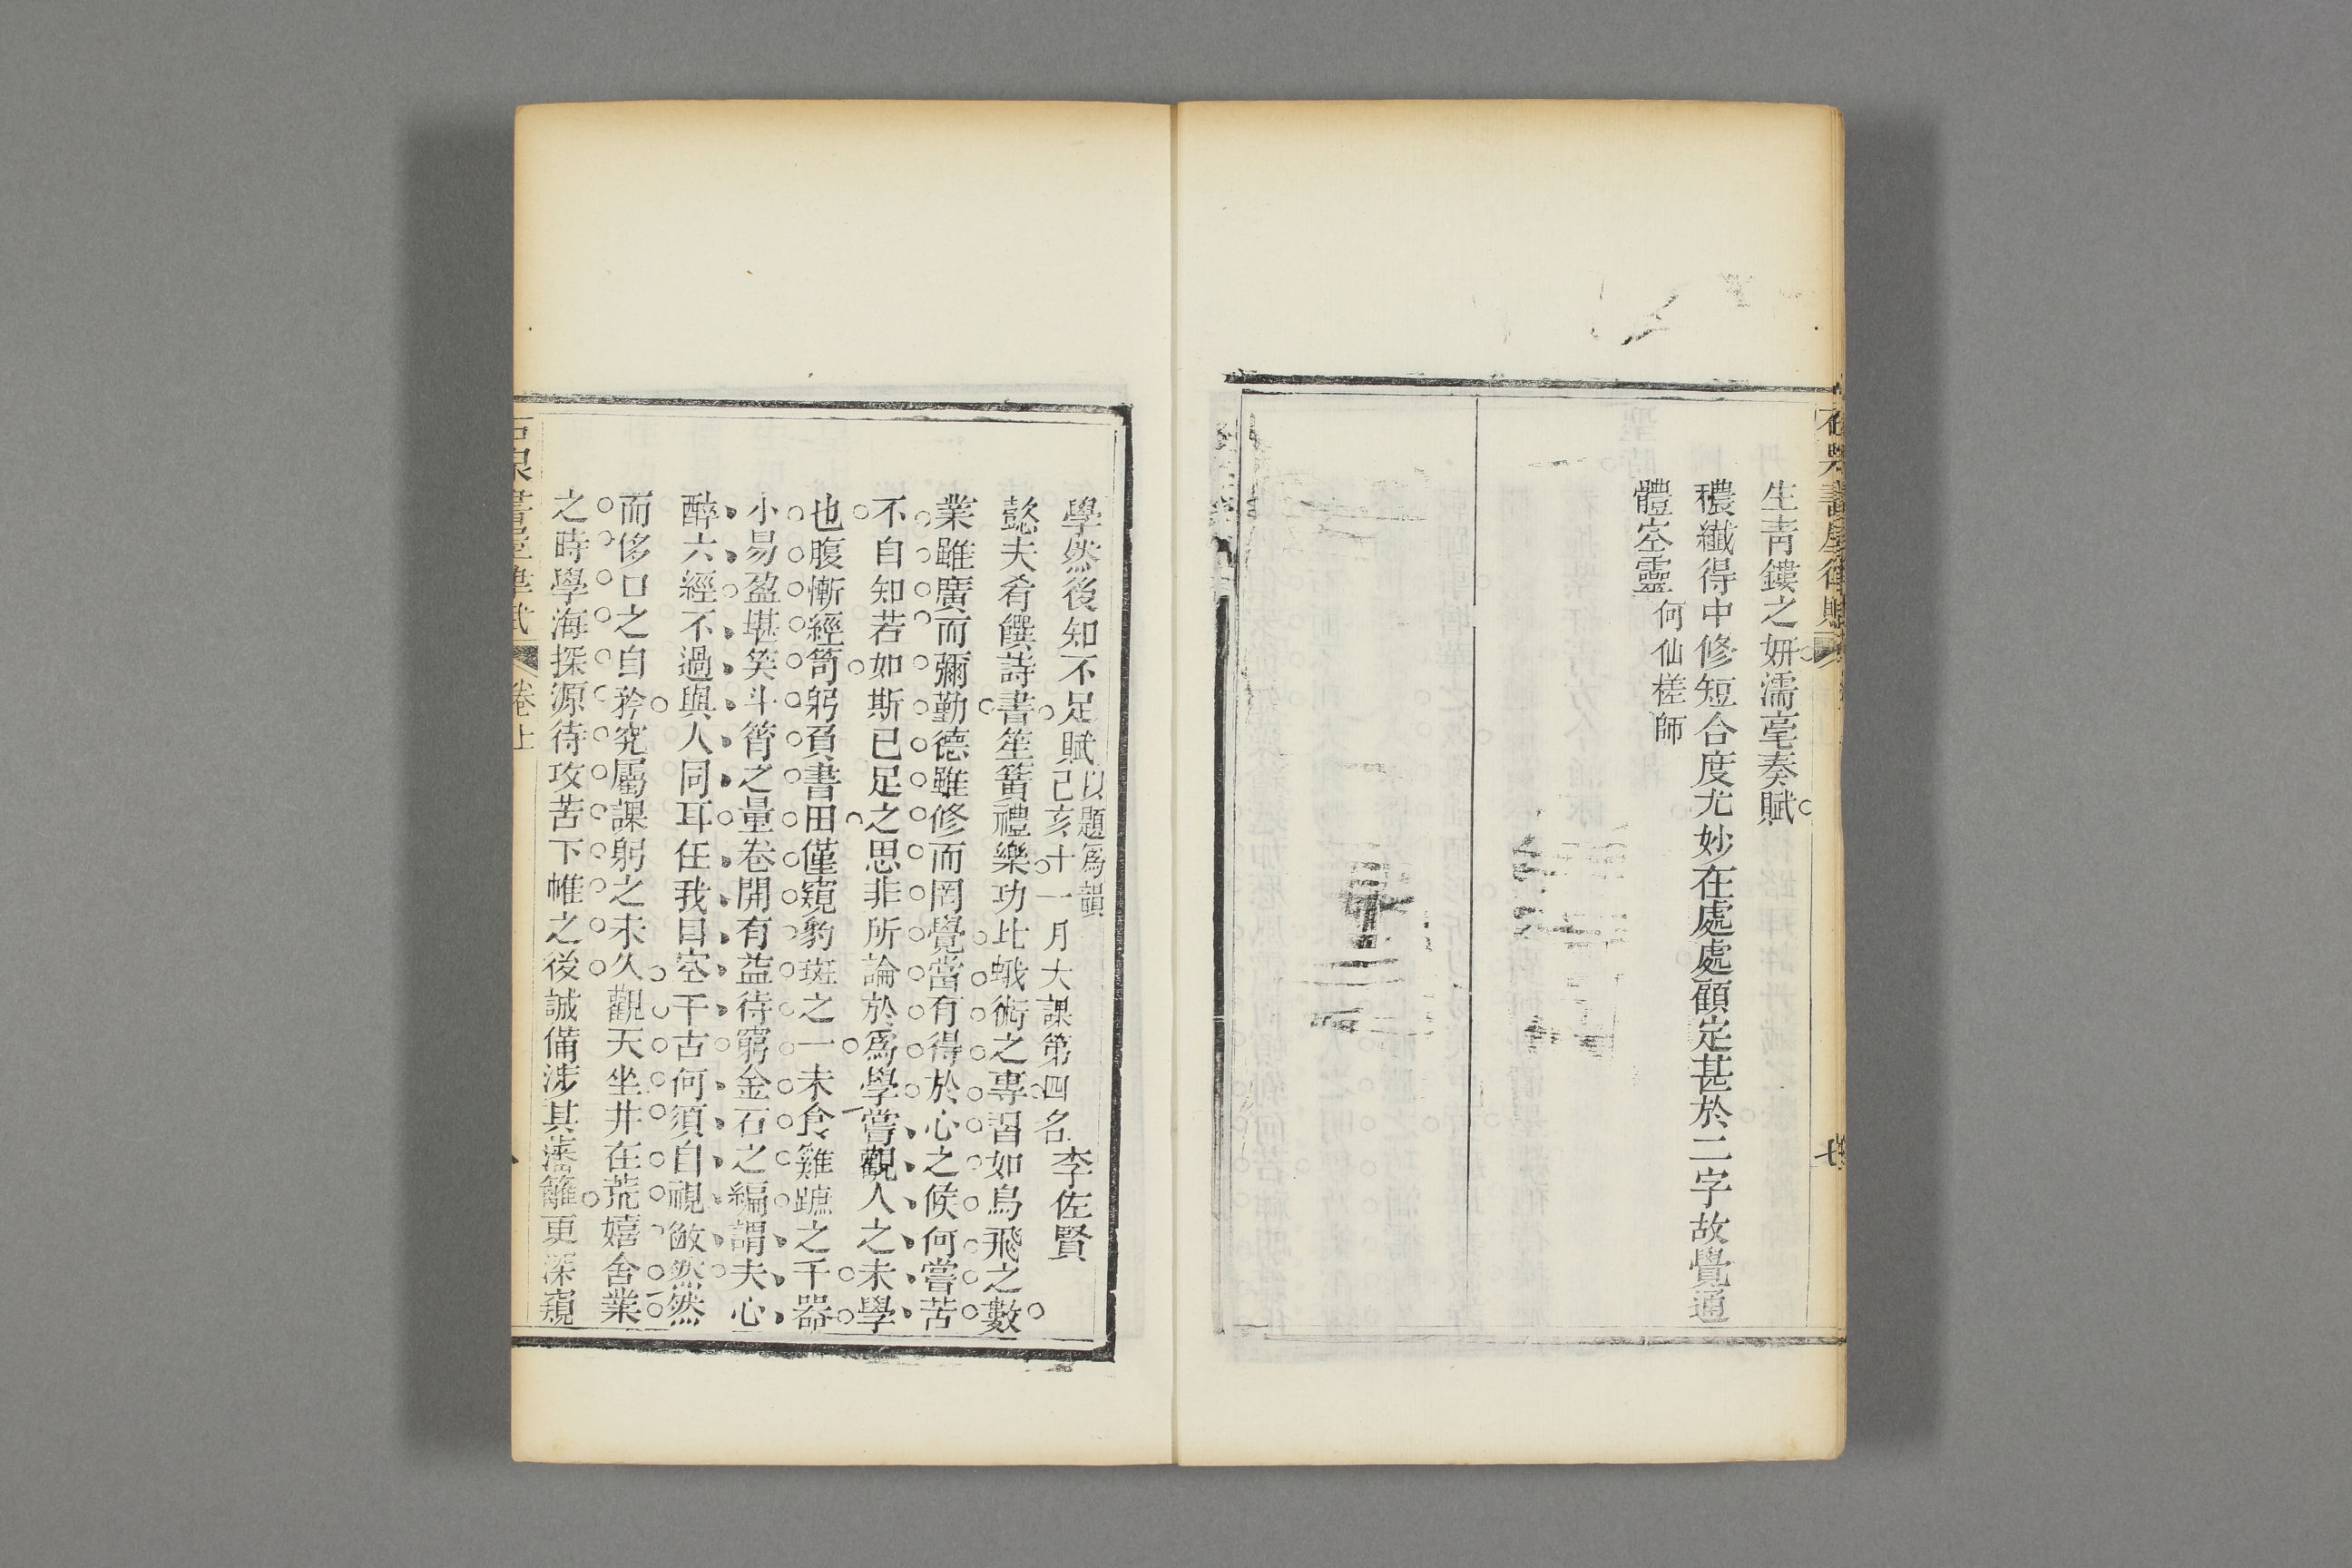 生靑鏤之妍濡毫奏賦
穠纖得中修短合度尤妙在處處顧定甚於二字故覺通
體空靈何仙槎師
七
學然後知不足賦以題爲韻己亥十一月大課第四名李佐賢
懿夫肴饌詩書笙簧禮樂功比蛾術之專習如鳥飛之數
業雖廣而彌勤德雖修而罔覺當有得於心之候何嘗苦
不自知若如斯已足之思非所論於爲學嘗觀人之未學
也腹慚經笥躬負書田僅窺豹斑之一未食雞蹠之千器
小易盈堪笑斗筲之量卷開有益待窮金石之編謂夫心
醉六經不過與人同耳任我目空千古何須自視欿然然
而侈口之自矜究屬課躬之未久觀天坐井在荒嬉舍業
之時學海探源待攻苦下帷之後誠備涉其藩籬更深窺
卷上